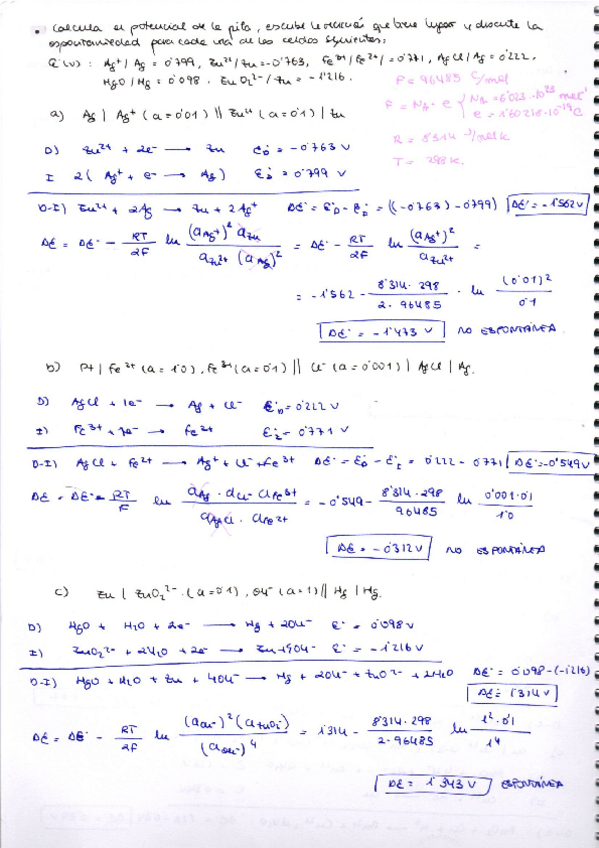 • Calcula el potencial de la pila, escribe la reacción que tiene lugar y discute la
espontaneidad para cada una de las celdas siguientes:
Ɛ°(V) : Ag⁺/Ag = 0'799, Zn²⁺/Zn = -0'763, Fe³⁺/Fe²⁺/=0'771, AgCl/Ag = 0'222,
HgO/Hg = 0'098. ZnO₂²⁻/Zn = -1'216.
F = 96485 C/mol
F = NA · e { NA = 6'023·10²³ mol⁻¹
e = 1'60218·10⁻¹⁹ C
R = 8'314 J/mol K
T = 298 K.
a) Ag | Ag⁺ (a = 0'01) || Zn²⁺ (a = 0'1) | Zn
D) Zn²⁺ + 2e⁻ → Zn Ɛ°D = -0'763 V
I 2( Ag⁺ + e⁻ → Ag) Ɛ°D = 0'799 V
D-I) Zn²⁺ + 2Ag → Zn + 2Ag⁺ ΔƐ° = Ɛ°D - Ɛ°D = ((-0'763) - 0'799) ΔƐ° = -1'562 V
ΔƐ = ΔƐ° - RT/2F ln (aAg⁺)² aZn / aZn²⁺ (aAg)² = ΔƐ° - RT/2F ln (aAg⁺)² / aZn²⁺ =
= -1'562 - 8'314 · 298 / 2 · 96485 · ln (0'01)² / 0'1
ΔƐ° = -1'473 V NO ESPONTÁNEA.
b) Pt | Fe²⁺ (a = 1'0), Fe³⁺ (a = 0'1) || Cl⁻ (a = 0'001) | AgCl | Ag.
D) AgCl + 1e⁻ → Ag + Cl⁻ Ɛ°D = 0'222 V
I) Fe³⁺ + 1e⁻ → Fe²⁺ Ɛ°I = 0'771 V
D-I) AgCl + Fe²⁺ → Ag⁺ + Cl⁻ + Fe³⁺ ΔƐ° = Ɛ°D - Ɛ°I = 0'222 - 0'771 ΔƐ° = -0'549 V
ΔƐ = ΔƐ° - RT/F ln aAg · aCl⁻ aFe³⁺ / aAgCl · aFe²⁺ = -0'549 - 8'314 · 298 / 96485 ln 0'001·0'1 / 1'0
ΔƐ° = -0'312 V NO ESPONTÁNEA
c) Zn | ZnO₂²⁻ (a = 0'1), OH⁻ (a = 1) || Hg | Hg.
D) HgO + H₂O + 2e⁻ → Hg + 2OH⁻ Ɛ° = 0'098 V
I) ZnO₂²⁻ + 2H₂O + 2e⁻ → Zn + 4OH⁻ Ɛ° = -1'216 V
D-I) HgO + H₂O + Zn + 4OH⁻ → Hg + 2OH⁻ + ZnO²⁻ + 2H₂O ΔƐ° = 0'098 - (-1'216)
ΔƐ = 1'314 V
ΔƐ = ΔƐ° - RT/2F ln (aOH⁻)² (aZnO₂²⁻) / (aOH⁻)⁴ = 1'314 - 8'314 · 298 / 2 · 96485 ln 1² · 0'1 / 1⁴
ΔƐ = 1'343 V ESPONTÁNEA